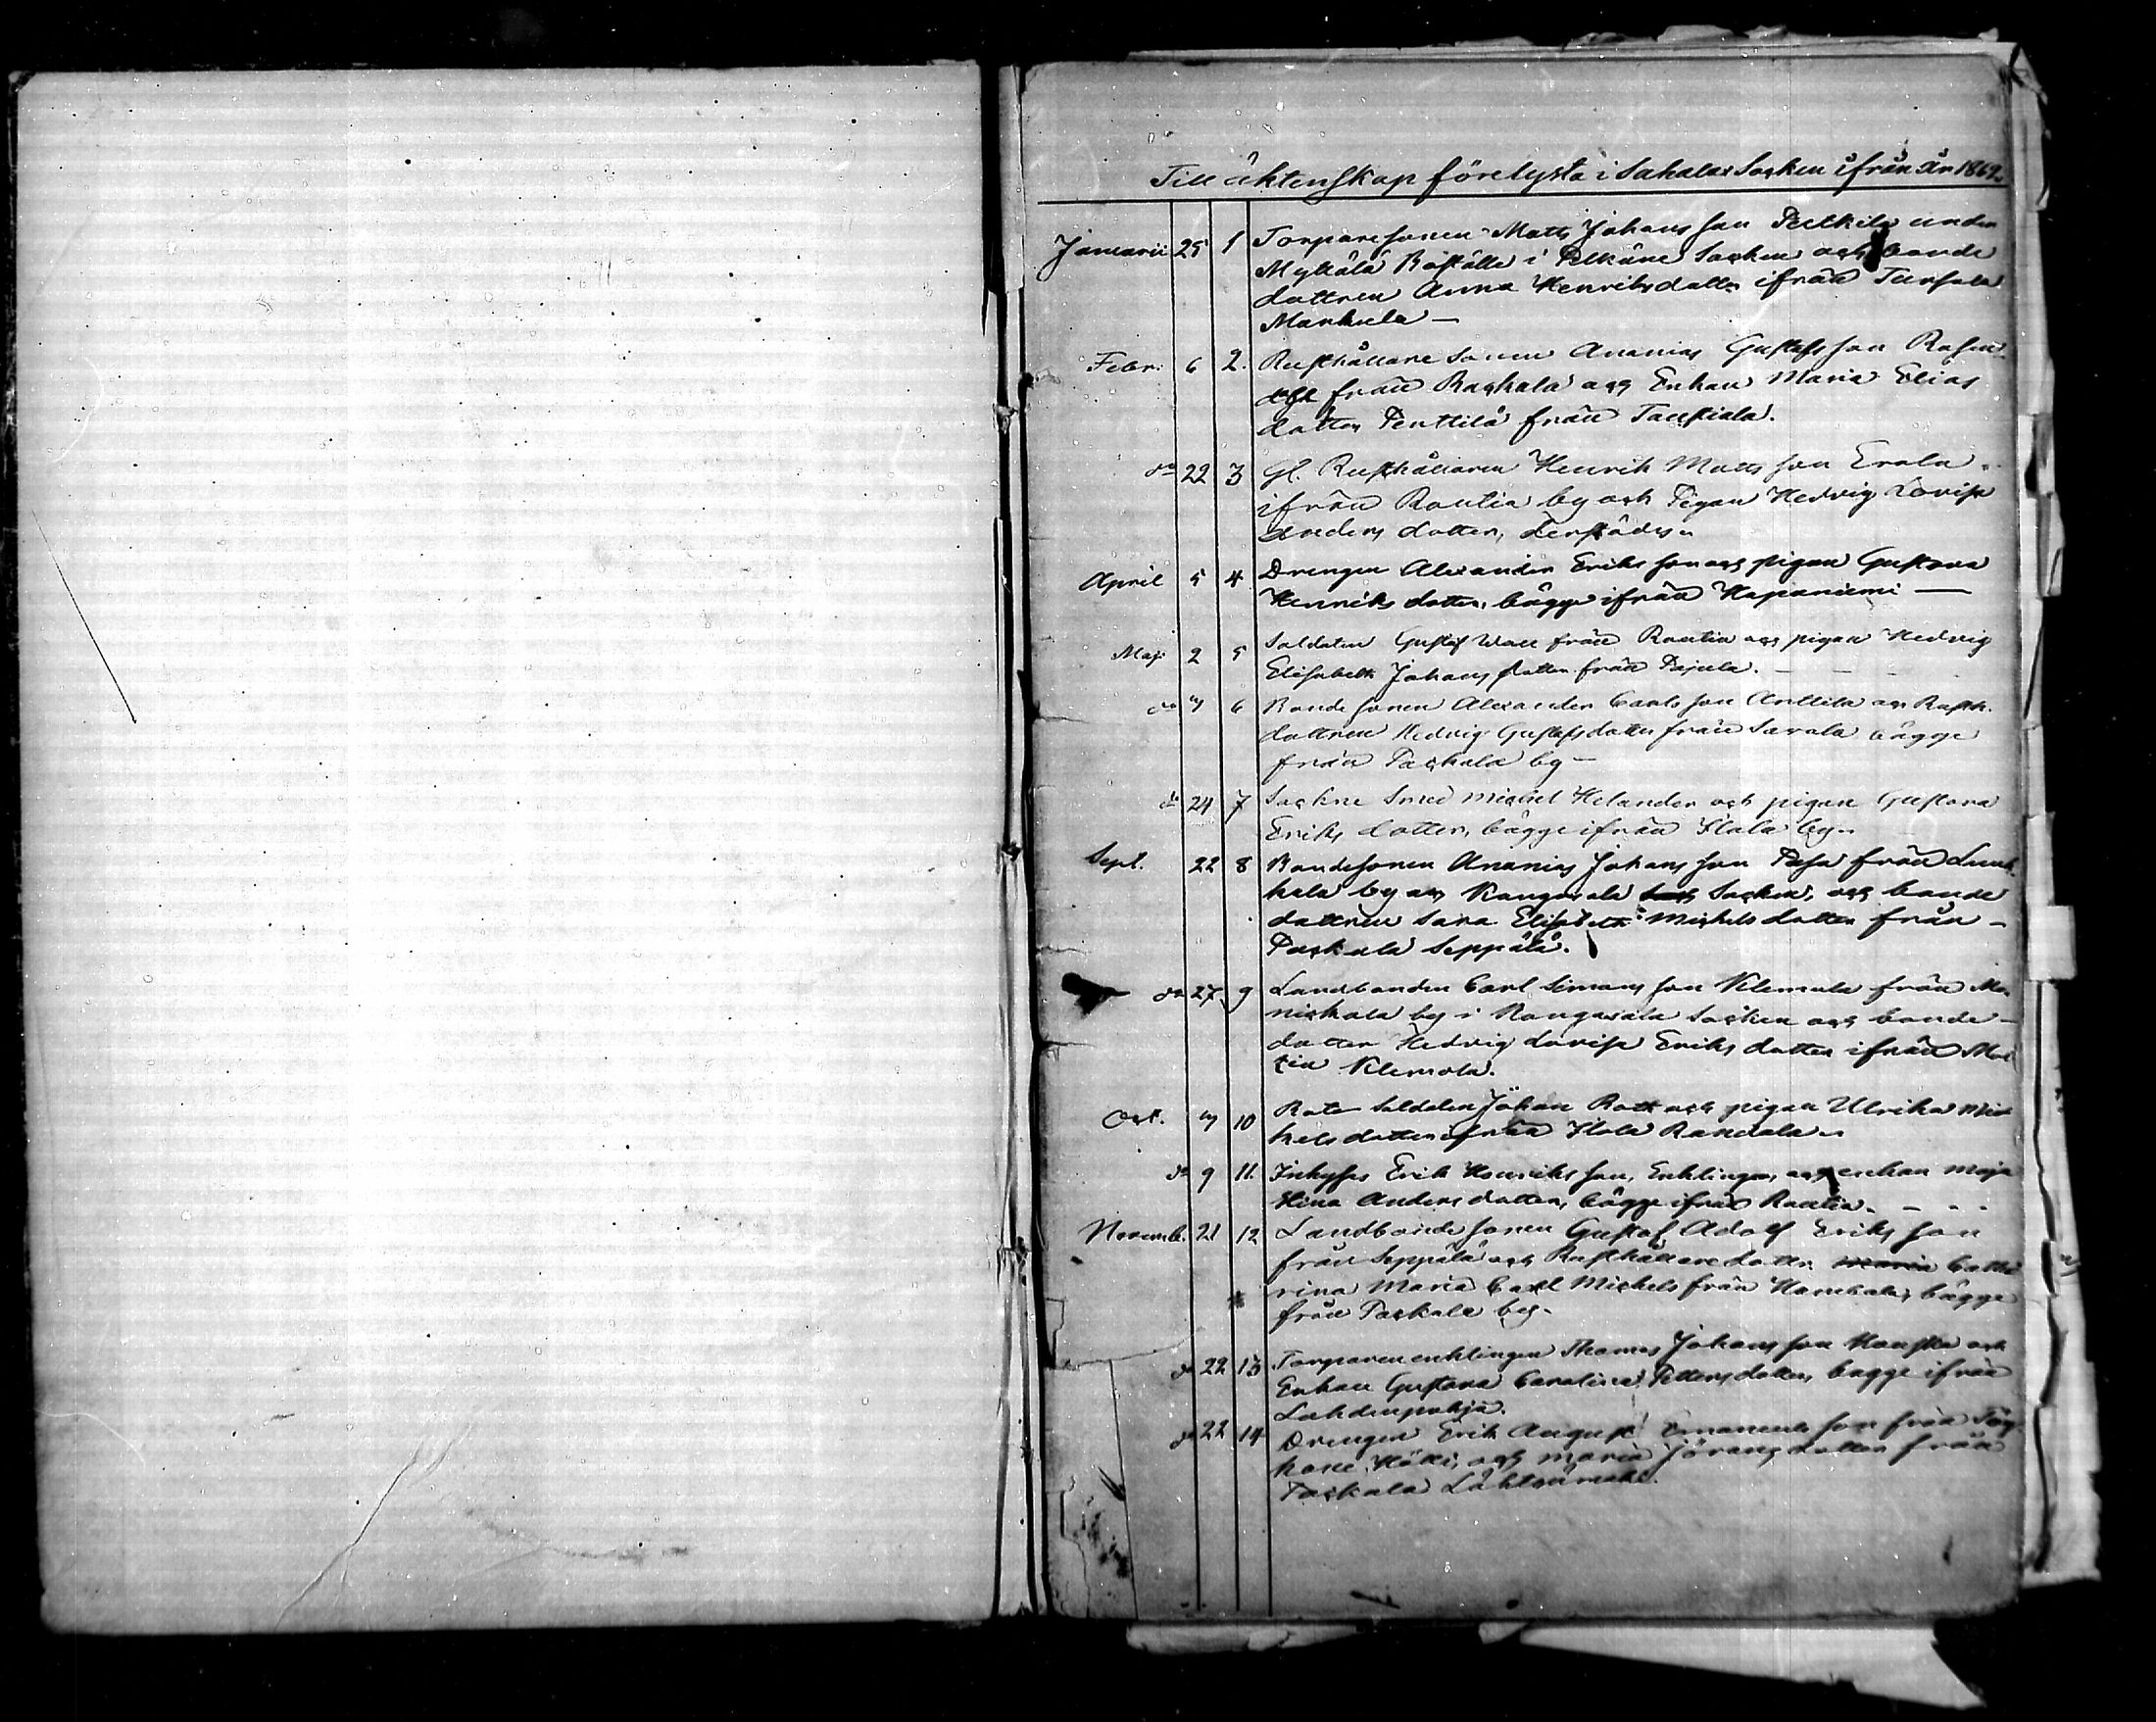 Till äktenskap förelysta i Sahalax Socken ifrån år 1869.
Januarii 25 1 Torpare sonen Matts Johansson under
Myltälä Boställe i Pelkäne Socken och bonde
dottren Anna Henriksdotter ifrån Tursola
Markula —
Febr. 6 2. Rusthållare Sonen Ananias Gustafsson
från och Enkan Maria Elias
dotter Penttilä från
do 22 3 Gl. Rusthållaren Henrik Mattsson Erola
ifrån Rautia by och Pigan Hedvig Lovisa
Anders dotter,
April 5 4 Drengen Alexander Eriksson och pigan Gustava
Henriks dotter, bägge ifrån Haponiemi —
Maji 2 5 Soldaten Gustaf Wall från Rautia och pigan Hedvig
Elisabeth Johans dotter från Pajula. —
do 6 Bonde sonen Alexander Carlsson Anttila och Rusth.
dottren Hedvig Gustafsdotter från Savola bägge
från Packala by —
do 24 7 Sockne Smed Michel Helander och pigan Gustava
Eriks dotter, bägge ifrån Ilola by.
Sept. 22 8 Bondesonen Ananias Johansson från
by och Kangasala Socken, och bonde
dottren Sara Elisabeth Michelsdotter från —
Packala Seppälä.
do 27 9 Landbonden Carl Simonsson Klemola från
by i Kangasala Socken och bonde —
dotter Hedvig Lovisa Eriks dotter ifrån
Klemola.
Oct. 10 Rote Soldaten Johan Rask och pigan Ulrika Mic
helsdotter ifrån Ilola
do 9 11. Inhyses Erik Henriksson, Enklingen, och enkan Maja
Stina Andersdotter, bägge ifrån Rautia. —
Novemb. 21 12 Landbondesonen Gustaf Adolf Eriksson
från Seppälä och Rusthållare dottr. Maria Cathe
rina Maria Carl Michels från bägge
från Packala by.
do 22 13 Torparenenklingen Thomas Johansson och
Enkan Gustava Carolina Petters dotter, bägge ifrån
Lahdenpohja.
do 22 14 Drengen Erik August Emanuelsson från
och Maria Jöransdotter från
Packala